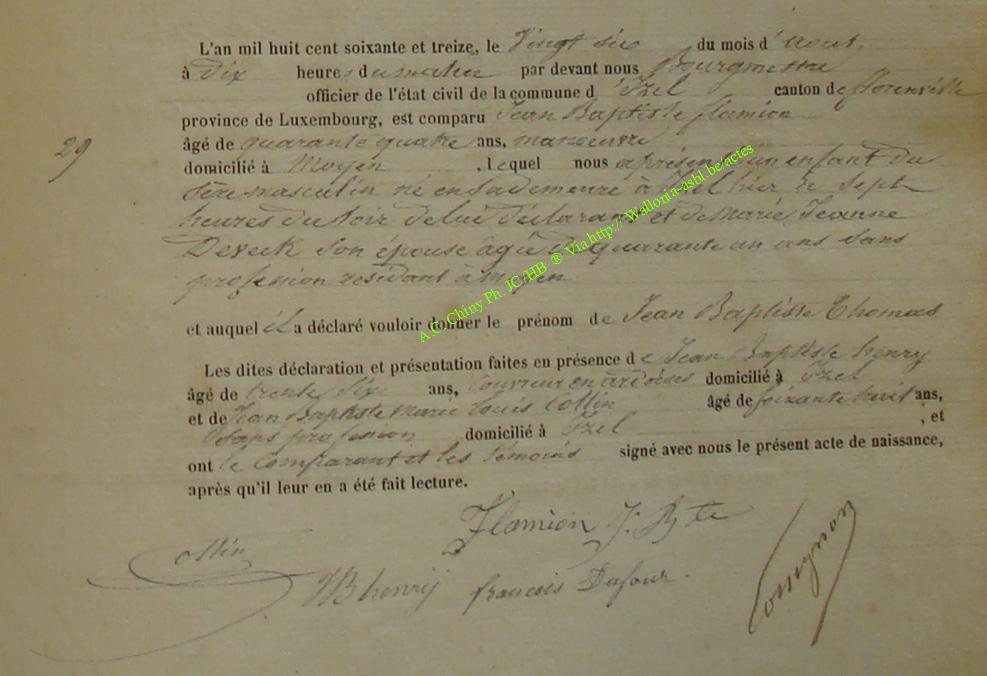 L'an mil huit cent soixante et treize, le Vingt six du mois d' Aout,
à Dix heures du matin par devant nous Bourgmestre
officier de l'état civil de la commune d' Izel canton de florenville
province de Luxembourg, est comparu Jean Baptiste flamion
29
âgé de quarante quatre ans, manoeuvre
domicilié à Moyen , lequel nous a présenté un enfant du
sexe masculin né en sa demeure à Izel hier à sept
heures du soir de lui déclarant et de Marie Jeanne
son épouse âgée de quarante un ans sans
profession residant à moyen
et auquel il a déclaré vouloir donner le prénom de Jean Baptiste Thomas
Les dites déclaration et présentation faites en présence de Jean Baptiste henry
âgé de trente six ans, Couvreur en ardoises domicilié à Izel
et de Jean Baptiste Marie Louis Collin âgé de soixante huit ans,
sans profession domicilié à Izel , et
ont le Comparant et les témoins signé avec nous le présent acte de naissance,
après qu'il leur en a été fait lecture.
Flamion J. Bte
Collin
JB henry françois Dufour.
A.C. Chiny Ph. JC/HB ® Via http://Wallonia-asbl.be/actes